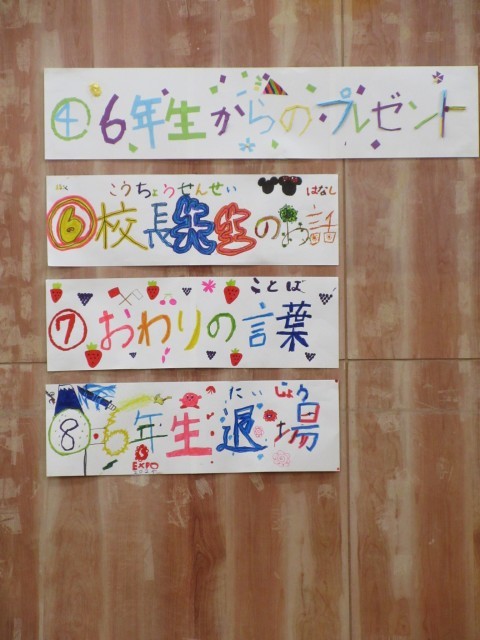 ④6年生からのプレゼント
こうちょうせんせい はなし
⑥校長先生のお話
ことば
⑦おわりの言葉
たい じょう
⑧6年生退場
EXPO